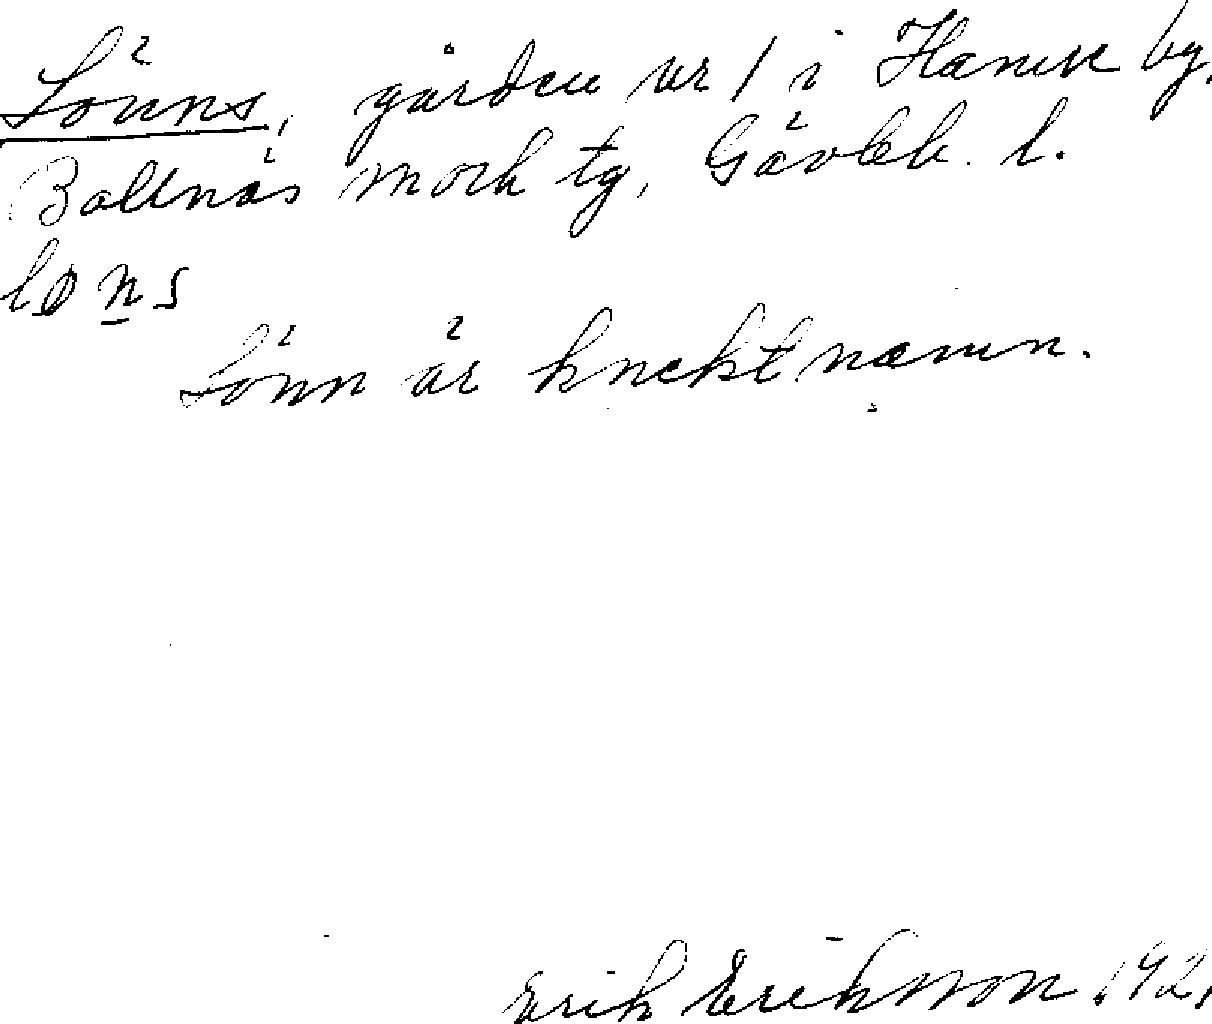 Lönns, gården nr 1 i Hamre by,
Bollnäs sock tg, Gävleb. l.
løns
Lönn är knektnamn.
Erik Eriksson 1921